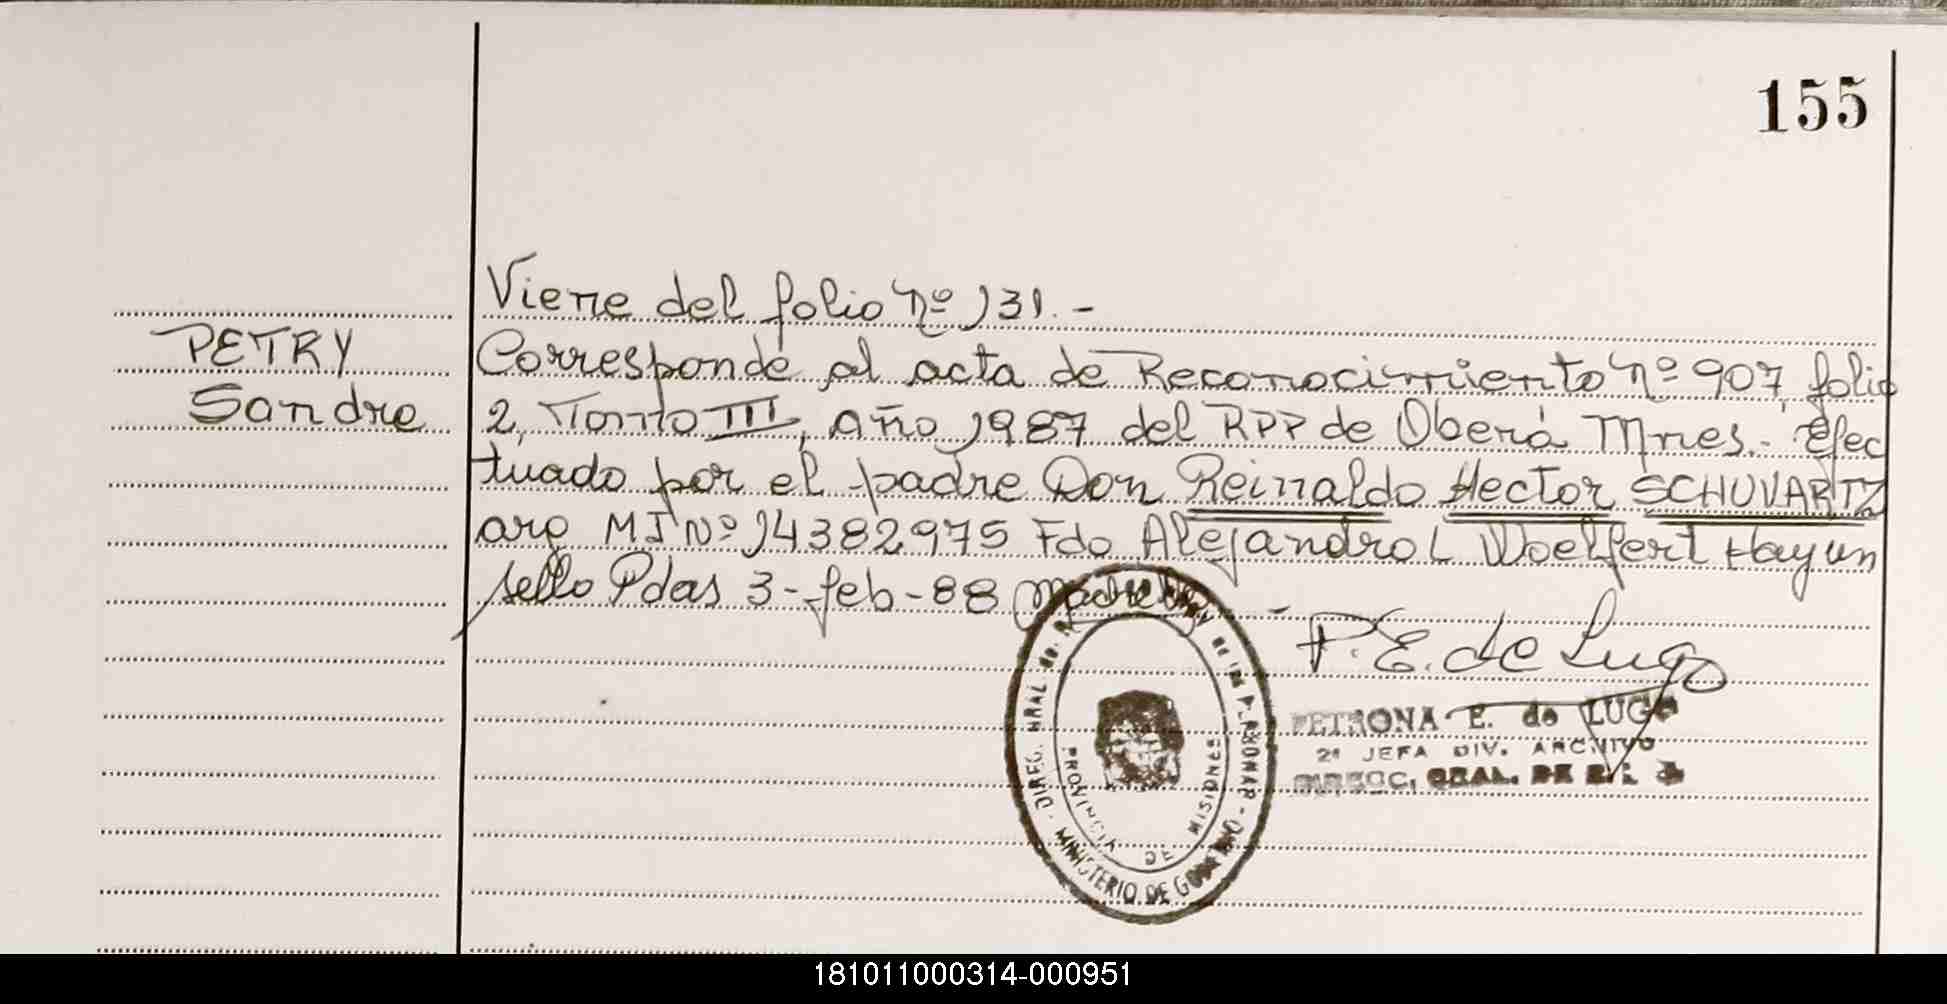 155
Viene del folio Nº 131.-
PETRY
Sandro
Corresponde al acta de Reconocimiento Nº 907, folio
2, Tomo III, Año 1987 del RPP de Oberá Mnes.- Efec
tuado por el padre Don Reinaldo Hector SCHUVARTZ
arg MI Nº 14382975 Fdo Alejandro L Woelfert Hay un
sello Pdas 3-feb-88
P.E. de Lugo
PETRONA E. de LUGO
2ª JEFA DIV. ARCHIVO
DIREC. GRAL. DE
DIREC. GRAL. de DE LAS PERSONAS - MINISTERIO DE GOBIERNO
PROVINCIA DE MISIONES
181011000314-000951